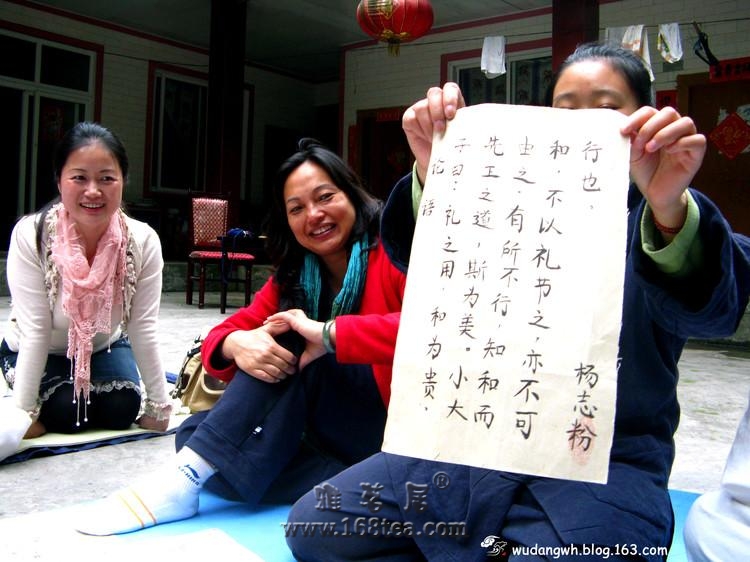 论语
子曰：礼之用，和为贵，
先王之道，斯为美。小大
由之，有所不行，知和而
和，不以礼节之，亦不可
行也。
杨志粉
雅茗居®
www.168tea.com
wudangwh.blog.163.com